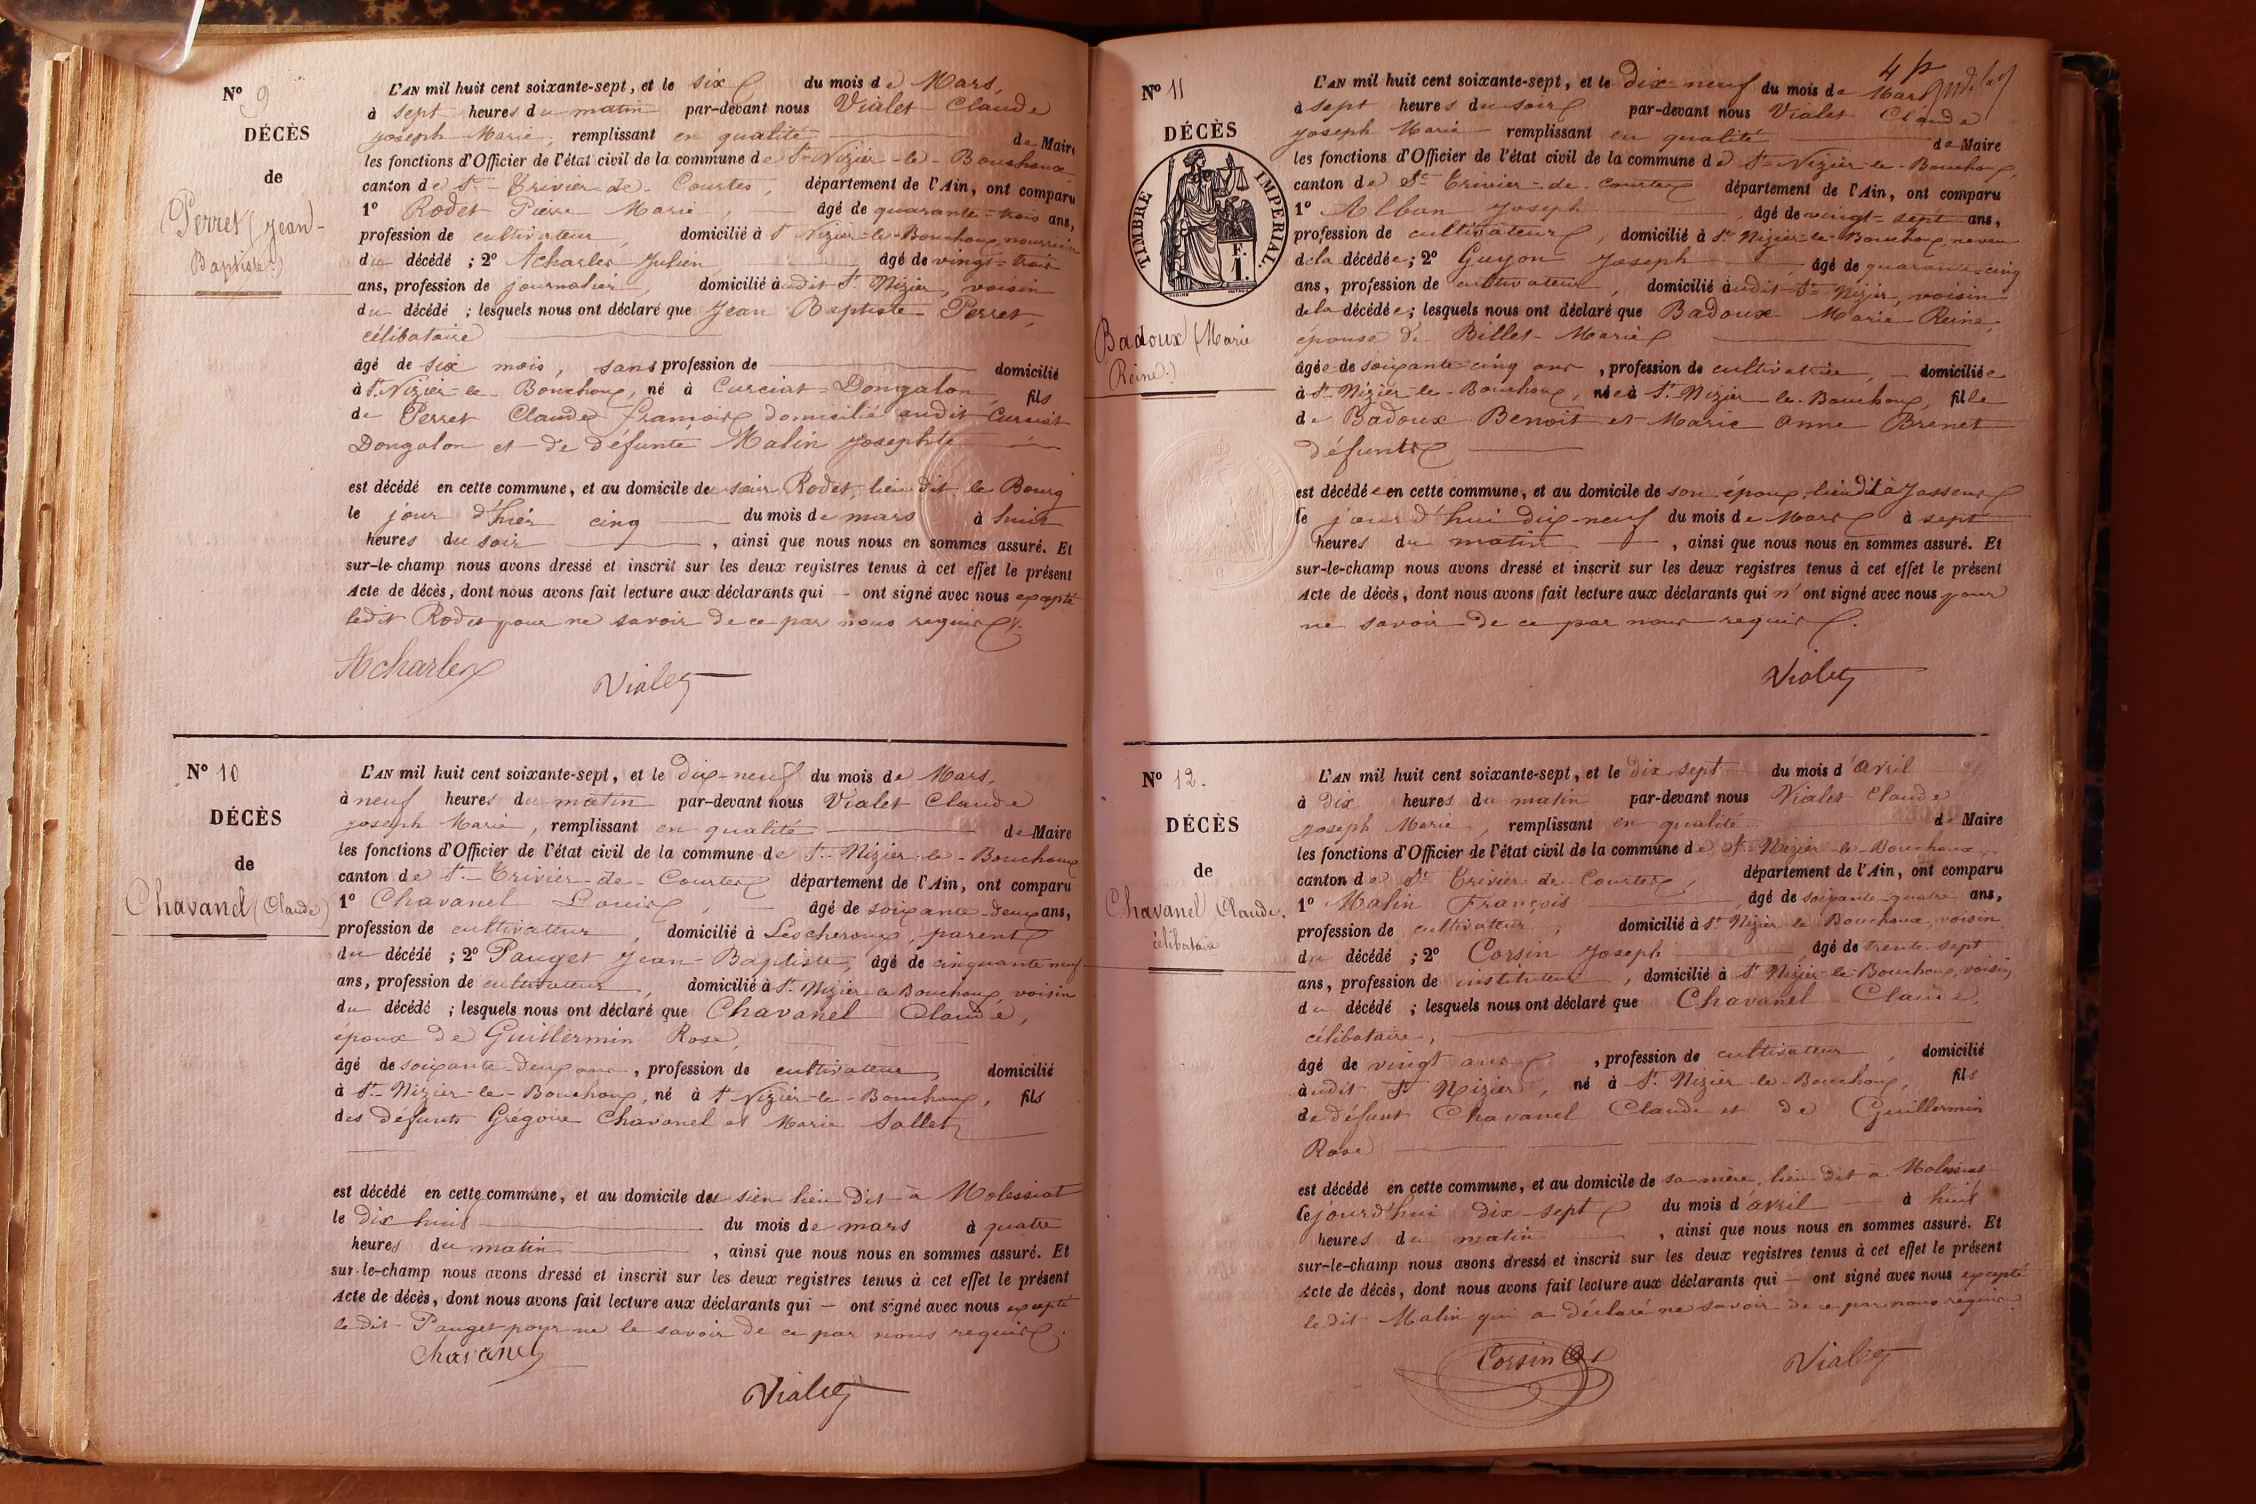 N° 9
DÉCÈS
de
Perret (Jean-
Baptiste)
L'AN mil huit cent soixante-sept, et le six du mois de Mars,
à sept heures du matin par-devant nous Vialet Claude
Joseph Marie, remplissant en qualité de Maire
les fonctions d'Officier de l'état civil de la commune de St Nizier-le-Bouchoux
canton de St-Trivier-de-Courtes, département de l'Ain, ont comparu
1° Rodet Pierre Marie, âgé de quarante-trois ans,
profession de cultivateur, domicilié à St Nizier-le-Bouchoux, nourricier
du décédé ; 2° Acharles Julien âgé de vingt-trois
ans, profession de journalier, domicilié audit St Nizier, voisin
du décédé ; lesquels nous ont déclaré que Jean Baptiste Perret,
célibataire
âgé de six mois, sans profession de domicilié
à St Nizier-le-Bouchoux, né à Curciat-Dongalon, fils
de Perret Claude François domicilié audit Curciat
Dongalon et de défunte Malin Josephte
est décédé en cette commune, et au domicile de sieur Rodet, lieu dit le Bourg
le jour d'hier cinq du mois de mars à huit
heures du soir, ainsi que nous nous en sommes assuré. Et
sur-le-champ nous avons dressé et inscrit sur les deux registres tenus à cet effet le présent
Acte de décès, dont nous avons fait lecture aux déclarants qui – ont signé avec nous excepté
ledit Rodet pour ne savoir de ce par nous requis.
Acharles Vialet
N° 10
DÉCÈS
de
Chavanel (Claude)
L'AN mil huit cent soixante-sept, et le dix-neuf du mois de Mars,
à neuf heures du matin par-devant nous Vialet Claude
Joseph Marie, remplissant en qualité de Maire
les fonctions d'Officier de l'état civil de la commune de St-Nizier-le-Bouchoux
canton de St-Trivier-de-Courtes département de l'Ain, ont comparu
1° Chavanel Louis, âgé de soixante-deux ans,
profession de cultivateur, domicilié à Lescheroux, parent
du décédé ; 2° Pauget Jean-Baptiste, âgé de cinquante neuf
ans, profession de cultivateur, domicilié à St Nizier-le-Bouchoux, voisin
du décédé ; lesquels nous ont déclaré que Chavanel Claude,
époux de Guillermin Rose,
âgé de soixante-deux ans, profession de cultivateur, domicilié
à St-Nizier-le-Bouchoux, né à St Nizier-le-Bouchoux, fils
des défunts Grégoire Chavanel et Marie Sallet
est décédé en cette commune, et au domicile du sien lieu dit à Molessiat
le dix huit du mois de mars à quatre
heures du matin, ainsi que nous nous en sommes assuré. Et
sur-le-champ nous avons dressé et inscrit sur les deux registres tenus à cet effet le présent
Acte de décès, dont nous avons fait lecture aux déclarants qui – ont signé avec nous excepté
le dit Pauget pour ne le savoir de ce par nous requis.
Chavanel
Vialet
4 p
N° 11
DÉCÈS
TIMBRE IMPERIAL.
F.
1.
Badoux (Marie
Reine)
L'AN mil huit cent soixante-sept, et le dix-neuf du mois de Mars
à sept heures du soir par-devant nous Vialet Claude
Joseph Marie remplissant en qualité de Maire
les fonctions d'Officier de l'état civil de la commune de St-Nizier-le-Bouchoux,
canton de St Trivier-de-Courtes département de l'Ain, ont comparu
1° Alban Joseph, âgé de vingt-sept ans,
profession de cultivateur, domicilié à St Nizier-le-Bouchoux, neveu
de la décédée ; 2° Guyon Joseph, âgé de quarante-cinq
ans, profession de cultivateur, domicilié audit St Nizier, voisin
de la décédée ; lesquels nous ont déclaré que Badoux Marie Reine,
épouse de Billet Marie
âgée de soixante-cinq ans, profession de cultivatrice, domiciliée
à St Nizier-le-Bouchoux, née à St Nizier-le-Bouchoux, fille
de Badoux Benoit et Marie Anne Brenet
défunts
est décédée en cette commune, et au domicile de son époux, lieu dit à Josseur
le jour d'hui dix-neuf du mois de Mars à sept
heures du matin, ainsi que nous nous en sommes assuré. Et
sur-le-champ nous avons dressé et inscrit sur les deux registres tenus à cet effet le présent
Acte de décès, dont nous avons fait lecture aux déclarants qui n'ont signé avec nous pour
ne savoir de ce par nous requis.
Vialet
N° 12.
DÉCÈS
de
Chavanel Claude,
célibataire
L'AN mil huit cent soixante-sept, et le dix sept du mois d'avril
à dix heures du matin par-devant nous Vialet Claude
Joseph Marie, remplissant en qualité de Maire
les fonctions d'Officier de l'état civil de la commune de St-Nizier-le-Bouchoux,
canton de St Trivier de Courtes, département de l'Ain, ont comparu
1° Malin François âgé de soixante-quatre ans,
profession de cultivateur, domicilié à St Nizier le Bouchoux, voisin
du décédé ; 2° Corsin Joseph, âgé de trente-sept
ans, profession de instituteur, domicilié à St Nizier-le-Bouchoux, voisin
du décédé ; lesquels nous ont déclaré que Chavanel Claude,
célibataire,
âgé de vingt ans, profession de cultivateur, domicilié
audit St Nizier, né à St Nizier-le-Bouchoux, fils
de défunt Chavanel Claude et de Guillermin
Rose
est décédé en cette commune, et au domicile de sa mère, lieu dit à Molessiat
le jourd'hui dix-sept du mois d'avril à huit
heures du matin, ainsi que nous nous en sommes assuré. Et
sur-le-champ nous avons dressé et inscrit sur les deux registres tenus à cet effet le présent
Acte de décès, dont nous avons fait lecture aux déclarants qui – ont signé avec nous excepté
le dit Malin qui a déclaré ne savoir de ce par nous requis.
Corsin Vialet